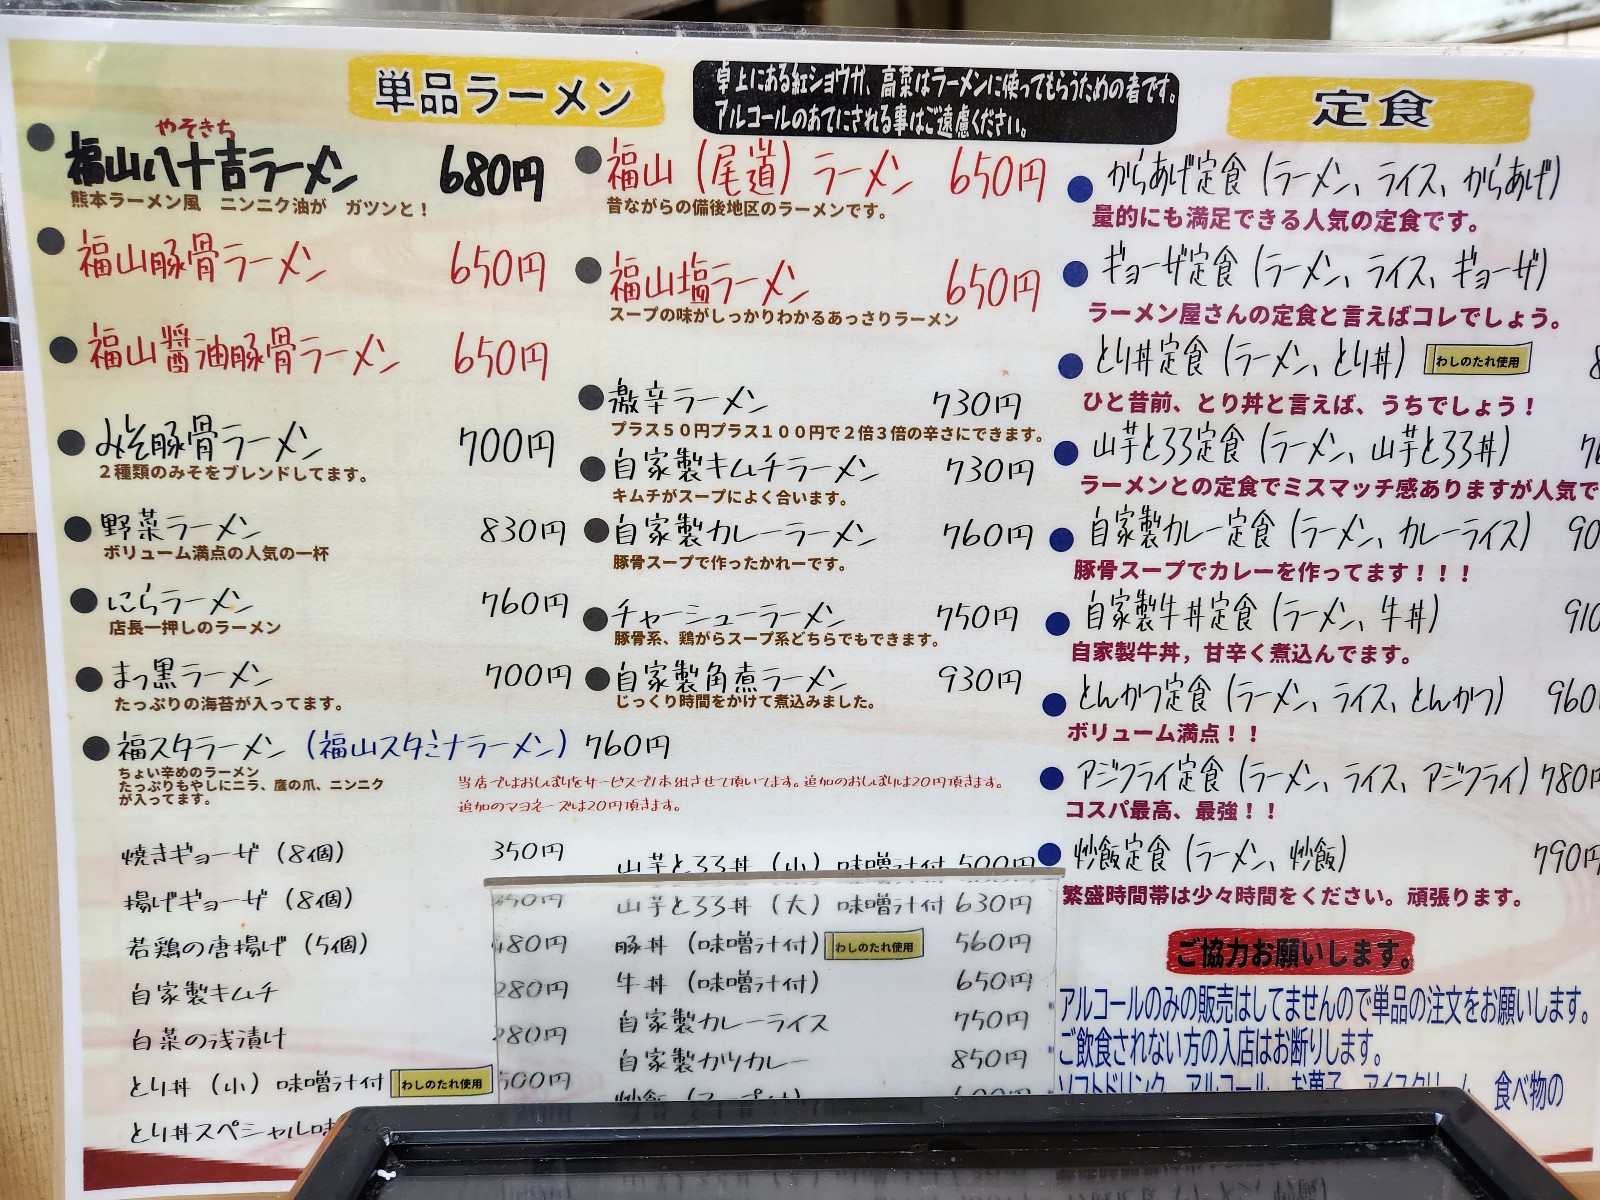 単品ラーメン
卓上にある紅ショウガ、高菜はラーメンに使ってもらうための者です。
アルコールのあてにされる事はご遠慮ください。
やそきち
福山八十吉ラーメン 680円
熊本ラーメン風 ニンニク油が ガツンと！
福山豚骨ラーメン 650円
福山醤油豚骨ラーメン 650円
みそ豚骨ラーメン 700円
２種類のみそをブレンドしてます。
野菜ラーメン 830円
ボリューム満点の人気の一杯
にらラーメン 760円
店長一押しのラーメン
まっ黒ラーメン 700円
たっぷりの海苔が入ってます。
福スタラーメン（福山スタミナラーメン）760円
ちょい辛めのラーメン
たっぷりもやしにニラ、鷹の爪、ニンニク
が入ってます。
福山（尾道）ラーメン 650円
昔ながらの備後地区のラーメンです。
福山塩ラーメン 650円
スープの味がしっかりわかるあっさりラーメン
激辛ラーメン 730円
プラス５０円プラス１００円で２倍３倍の辛さにできます。
自家製キムチラーメン 730円
キムチがスープによく合います。
自家製カレーラーメン 760円
豚骨スープで作ったかれーです。
チャーシューラーメン 750円
豚骨系、鶏がらスープ系どちらでもできます。
自家製角煮ラーメン 930円
じっくり時間をかけて煮込みました。
当店ではおしぼりをサービスで1本出させて頂いてます。追加のおしぼりは20円頂きます。
追加のマヨネーズは20円頂きます。
焼きギョーザ（8個） 350円
揚げギョーザ（8個） 350円
若鶏の唐揚げ（5個） 480円
自家製キムチ 280円
白菜の浅漬け 280円
とり丼（小）味噌汁付 わしのたれ使用 500円
とり丼スペシャル味
山芋とろろ丼（小）味噌汁付 500円
山芋とろろ丼（大）味噌汁付 630円
豚丼（味噌汁付）わしのたれ使用 560円
牛丼（味噌汁付） 650円
自家製カレーライス 750円
自家製カツカレー 850円
炒飯（スープ付） 600円
定食
からあげ定食（ラーメン、ライス、からあげ）
量的にも満足できる人気の定食です。
ギョーザ定食（ラーメン、ライス、ギョーザ）
ラーメン屋さんの定食と言えばコレでしょう。
とり丼定食（ラーメン、とり丼）わしのたれ使用 8
ひと昔前、とり丼と言えば、うちでしょう！
山芋とろろ定食（ラーメン、山芋とろろ丼） 76
ラーメンとの定食でミスマッチ感ありますが人気で
自家製カレー定食（ラーメン、カレーライス） 90
豚骨スープでカレーを作ってます！！！
自家製牛丼定食（ラーメン、牛丼） 910
自家製牛丼，甘辛く煮込んでます。
とんかつ定食（ラーメン、ライス、とんかつ） 960
ボリューム満点！！
アジフライ定食（ラーメン、ライス、アジフライ）780円
コスパ最高、最強！！
炒飯定食（ラーメン、炒飯） 790円
繁盛時間帯は少々時間をください。頑張ります。
ご協力お願いします。
アルコールのみの販売はしてませんので単品の注文をお願いします。
ご飲食されない方の入店はお断りします。
ソフトドリンク、アルコール、お菓子、アイスクリーム、食べ物の